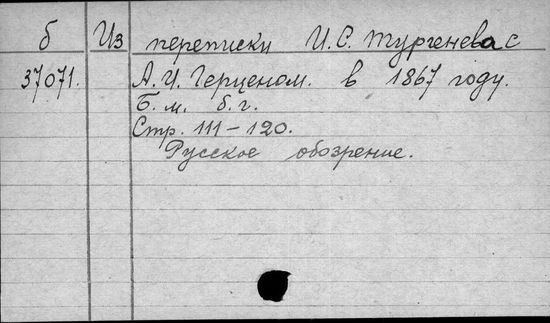 б Из переписки И.С. Тургенева с
37071. А.И. Герценом. в 1867 году.
Б. м. б. г.
Стр. 111-120.
Русское обозрение.